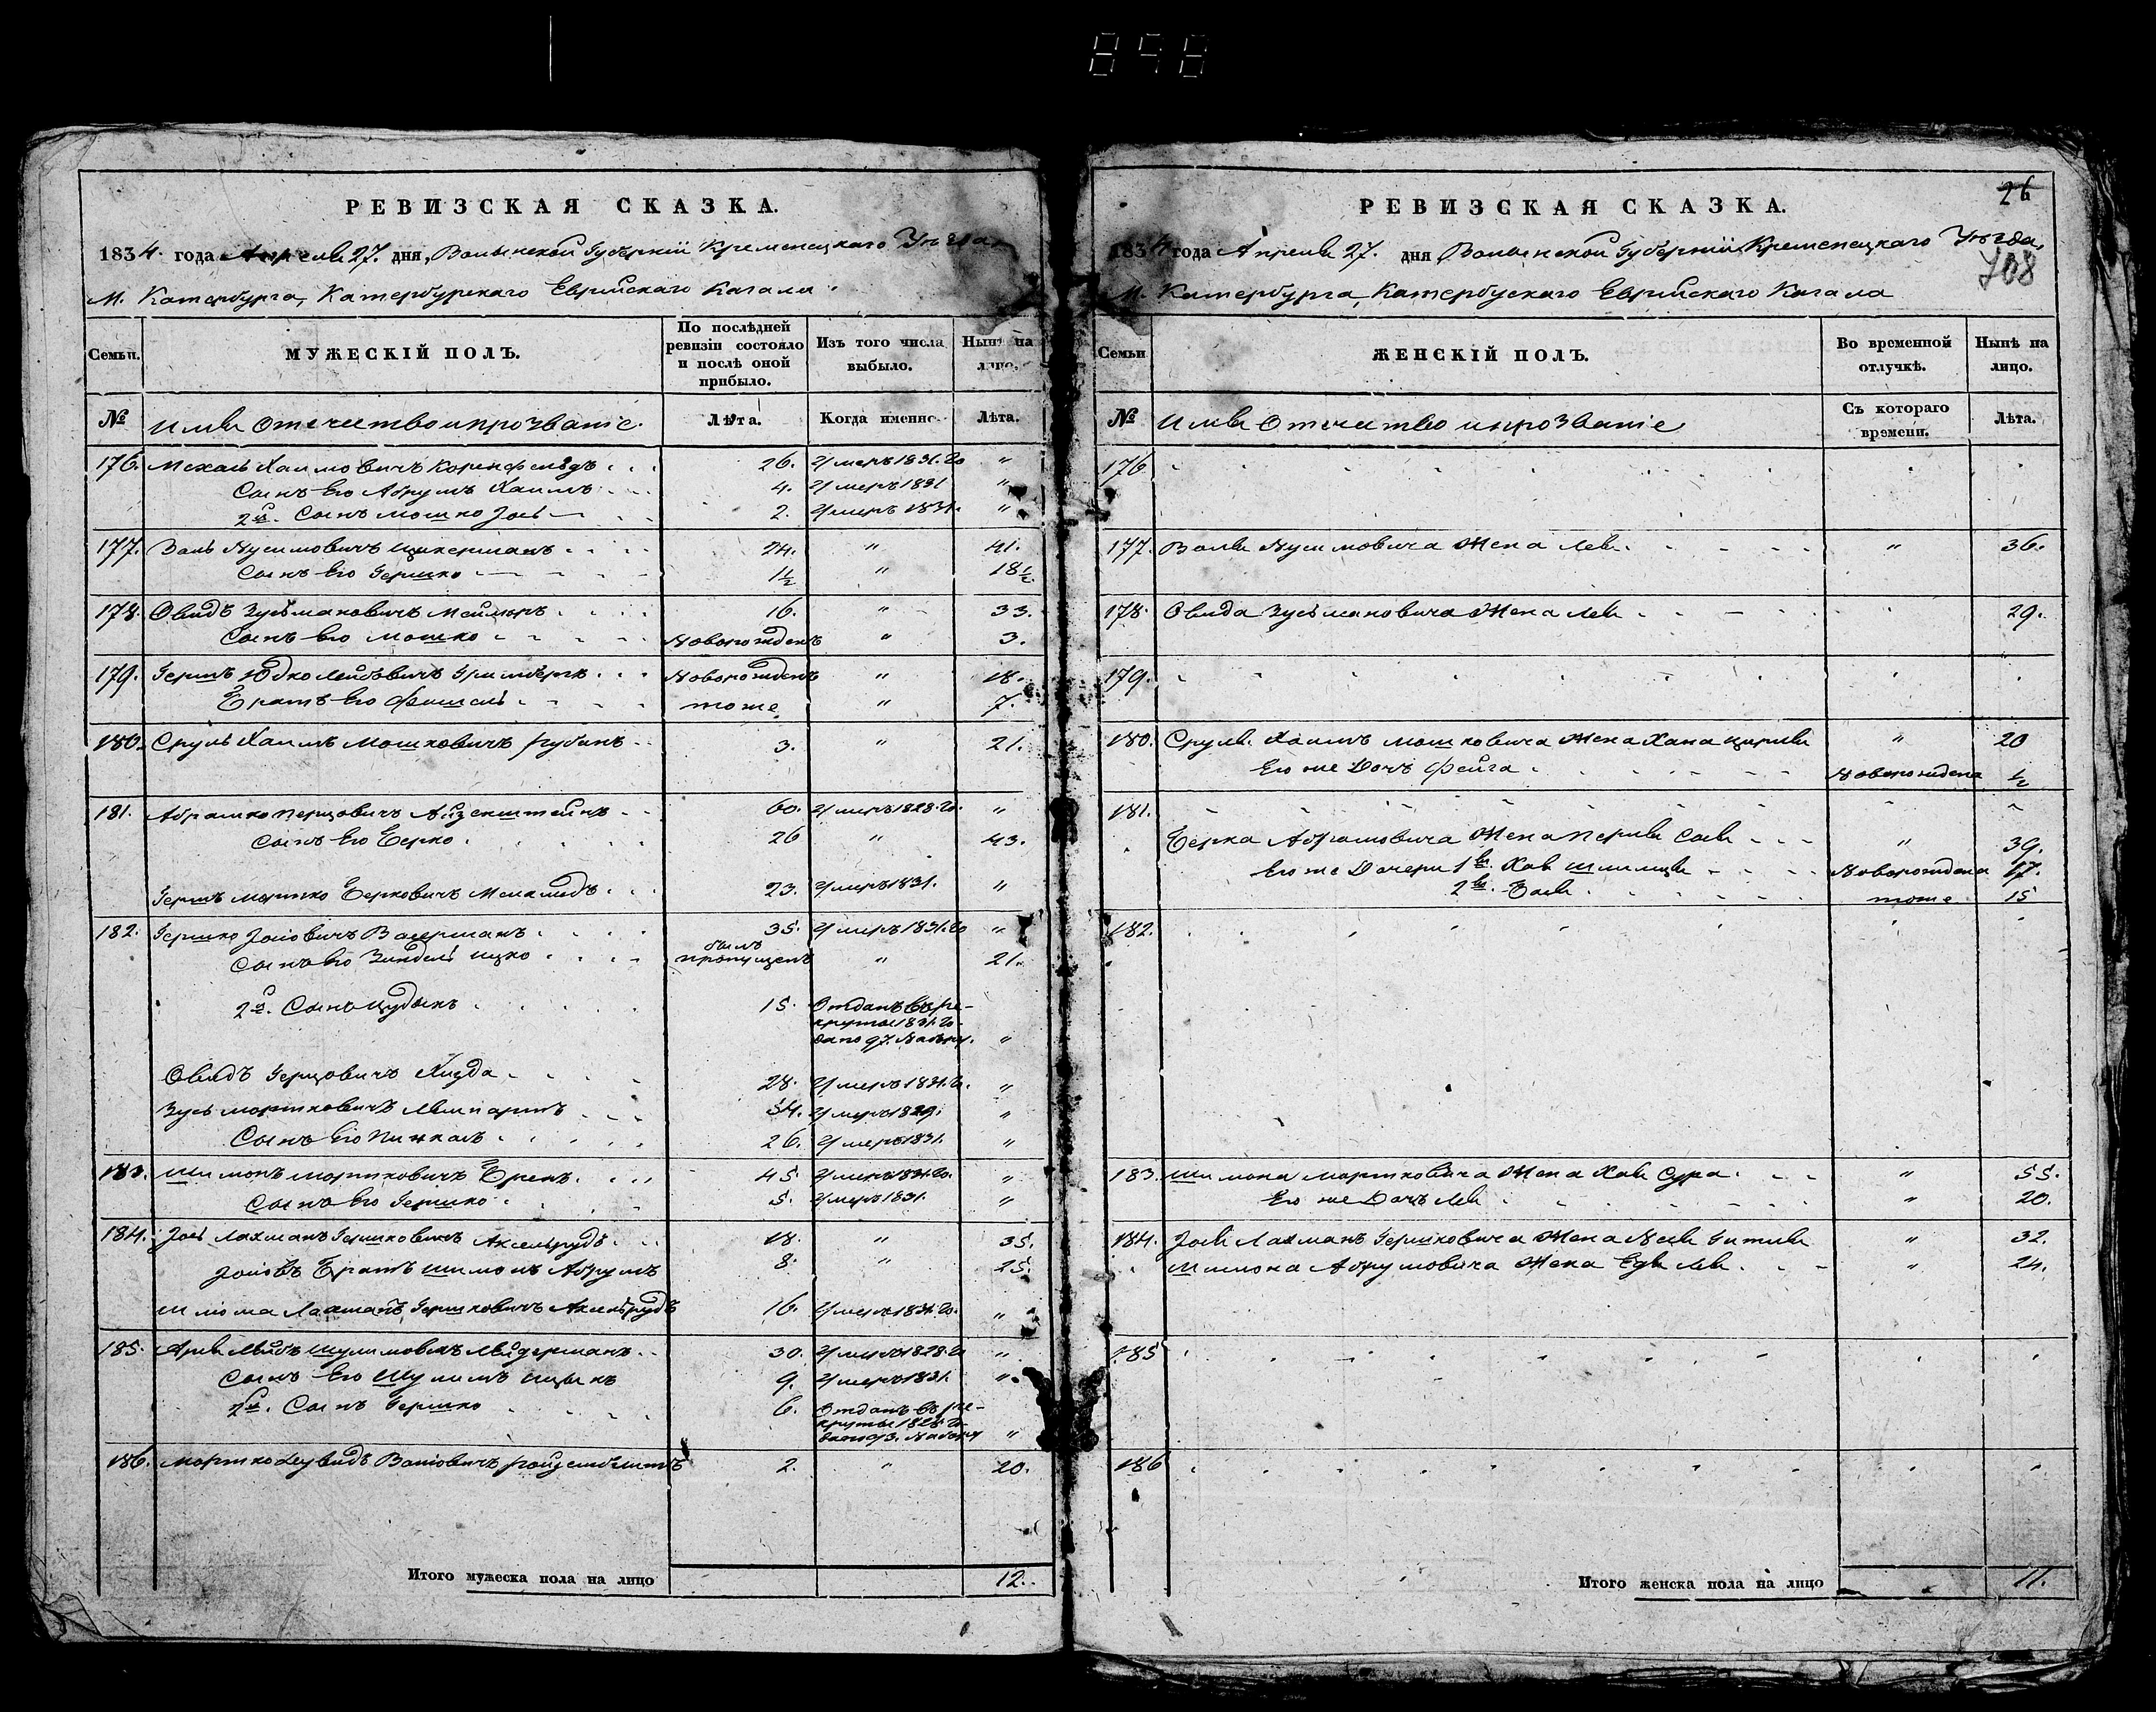 898
РЕВИЗСКАЯ СКАЗКА.
1834. года Апреля 27. дня, Волынской Губернии Кременецкаго Уезда
М. Катербурга, Катербурскаго Еврейскаго Кагала.
Семьи.
МУЖЕСКІЙ ПОЛЪ.
По послѣдней ревизіи состояло и послѣ оной прибыло.
Изъ того числа выбыло.
Нынѣ на лицо.
№
Имя Отечество и прозваніе.
Лѣта.
Когда именно.
Лѣта.
176. Мехаль Хаимовичъ Коренфельдъ 26. Умеръ 1831. го "
Сынъ Его Абрумъ Хаимъ 4. Умеръ 1831 "
2й. Сынъ Мошко Зось 2. Умеръ 1831. "
177.Воль Нусимовичъ Цукерманъ 24. " 41.
Сынъ Его Гершко 1½ " 18½.
178. Овидъ Зусьмановичъ 16. " 33.
Сынъ Его Мошко Новорожденъ " 3.
179. Гершъ Юдко Лейбовичъ Новорожденъ " 18.
Братъ Его Фишель тоже " 7.
180. Сруль Хаимъ Мошковичъ Рубинъ 3. " 21.
181. Абрамко Перцовичъ Айзенштейнъ 60. Умеръ 1828. го. "
Сынъ Его Берко 26 " 43.
Гершъ Мортко Берковичъ Меламедъ 23. Умеръ 1831. "
182. Гершко Зосіовичъ Ваерманъ 35. Умеръ 1831. го "
Сынъ Его Зиндель Ицко былъ пропущенъ " 21.
2й. Сынъ Цудыкъ 15. Отданъ въ ре-
круты 1831. го
за по 97. Набору. "
Овидъ Герцовичъ 28. Умеръ 1831. го. "
Зусь Мортковичъ 54. Умеръ 1829. "
Сынъ Его Пинкасъ 26. Умеръ 1831. "
183. Шимонъ Мортковичъ Бренъ 45 Умеръ 1831. го. "
Сынъ Его Гершко 5. Умеръ 1831. "
184. Зось Лахманъ Гершковичъ Аксельрудъ 18. " 35.
Зосіовъ Братъ Шимонъ Абрумъ 8. " 25.
Шлома Лахманъ Гершковичъ Аксельрудъ 16. Умеръ 1831. го. "
185. Арія Лейбъ Шулимовичъ Лейдерманъ 30. Умеръ 1828. го "
Сынъ Его Шулимъ Ицыкъ 9. Умеръ 1831. "
2й. Сынъ Гершко 6. Отданъ въ ре-
круты 1828 го
за по 93. Набору "
186. Мортко Дувидъ Воліовичъ 2. " 20.
Итого мужеска пола на лицо 12.
26
РЕВИЗСКАЯ СКАЗКА.
1834 года Апреля 27. дня Волынской Губернии Кременецкаго Уезда,
708
М. Катербурга, Катербускаго Еврейскаго Кагала
Семьи
ЖЕНСКІЙ ПОЛЪ.
Во временной отлучкѣ.
Нынѣ на лицо.
№
Имя Отечество и прозваніе
Съ котораго времени.
Лѣта.
176
177. Воля Нусимовича Жена Лея " 36.
178. Овида Зусьмановича Жена Лея 29.
179.
180. Сруля Хаимъ Мошковича Жена Хана Цирля " 20
Его же Дочь Фейга Новорождена ½
181. "
Берка Абрамовича Жена Перля Сося " 39.
Его же Дочери 1я. Хая Новорождена 17.
2я. Бася тоже 15
182.
183. Шимона Мортковича Жена Хая Сура " 55.
Его же Дочь Лея " 20.
184. Зося Лахманъ Гершковича Жена Неся Гитля " 32.
Шимона Абрумовича Жена Едя Лея " 24.
185
186
Итого женска пола на лицо 11.